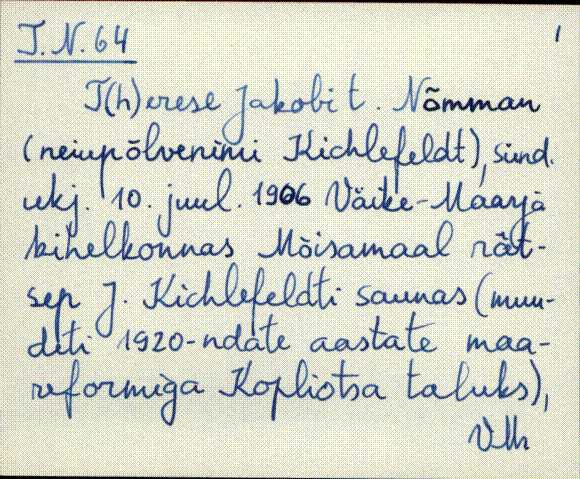 T.N.64
1
T(h)erese Jakobi t. Nõmman
(neiupõlvenimi Kichlefeldt), sünd.
ukj. 10. juul. 1906 Väike-Maarja
kihelkonnas Mõisamaal rät-
sep J. Kichlefeldti saunas (muu-
deti 1920-ndate aastate maa-
reformiga Kopliotsa taluks),